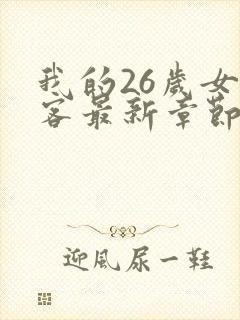 我的26歲女
客最新章節
迎風尿一鞋